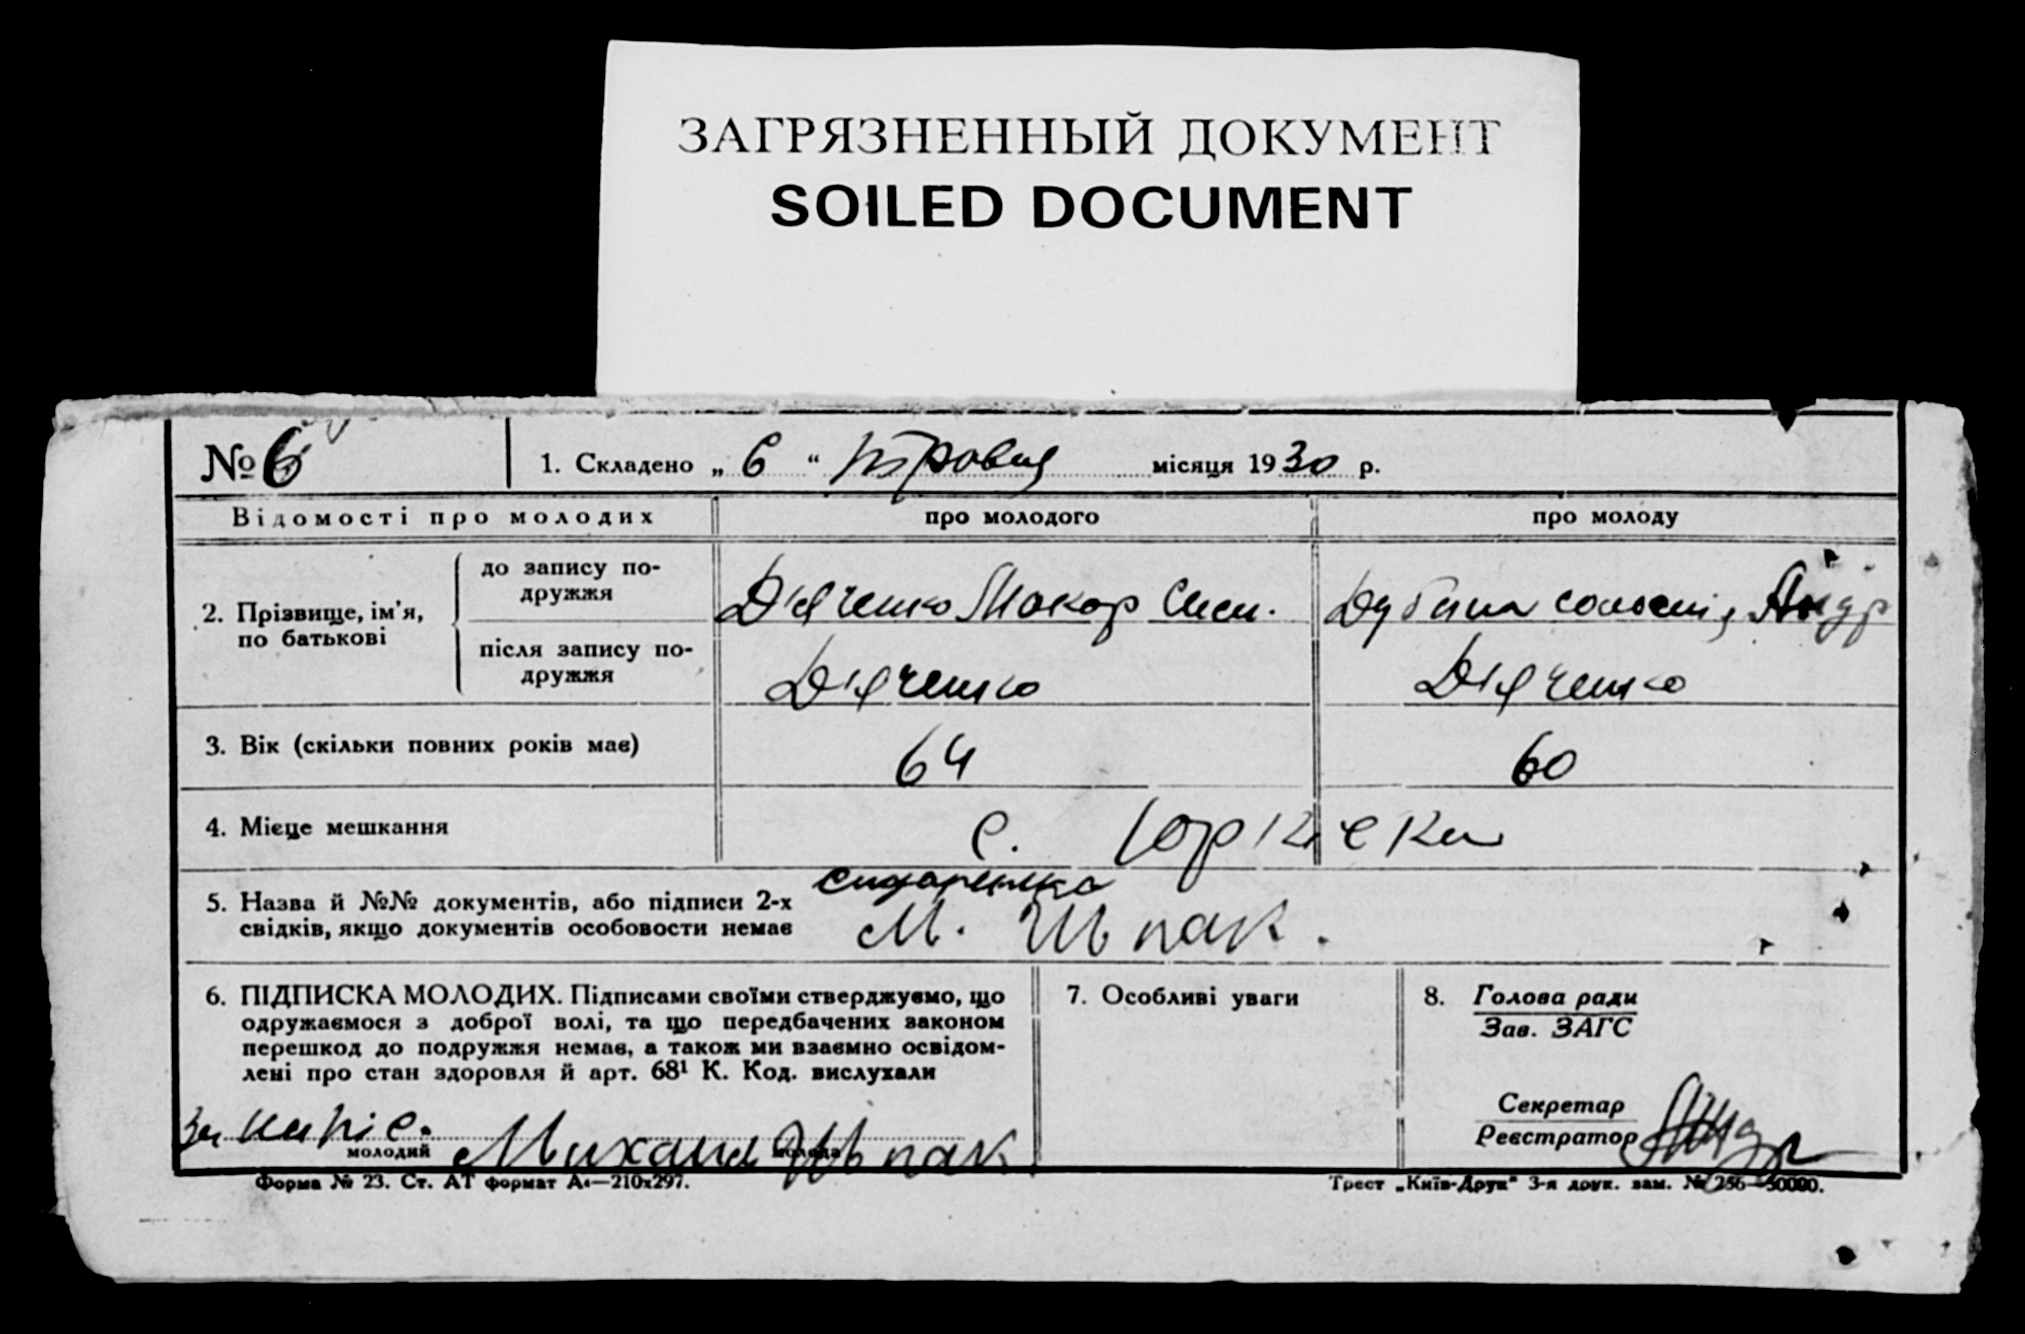 ЗАГРЯЗНЕННЫЙ ДОКУМЕНТ
SOILED DOCUMENT
№ 6
1. Складено „ 6 “ травня місяця 1930 р.
Відомості про молодих
про молодого
про молоду
2. Прізвище, ім'я, по батькові
до запису по-
дружжя
Дяченко Макар
Андр
після запису по-
дружжя
Дяченко
Дяченко
3. Вік (скільки повних років має)
64
60
4. Місце мешкання
с. Юрківка
5. Назва й №№ документів, або підписи 2-х
свідків, якщо документів особовости немає
М. Шпак.
6. ПІДПИСКА МОЛОДИХ. Підписами своїми стверджуємо, що
одружаємося з доброї волі, та що передбачених законом
перешкод до подружжя немає, а також ми взаємно освідом-
лені про стан здоровля й арт. 68¹ К. Код. вислухали
Михаил Шпак
молодий
молода
7. Особливі уваги
8. Голова ради
Зав. ЗАГС
Секретар
Реєстратор
Форма № 23. Ст. АТ формат А₄—210х297.
Трест „Київ-Друк“ 3-я друк. зам. № 256—50000.